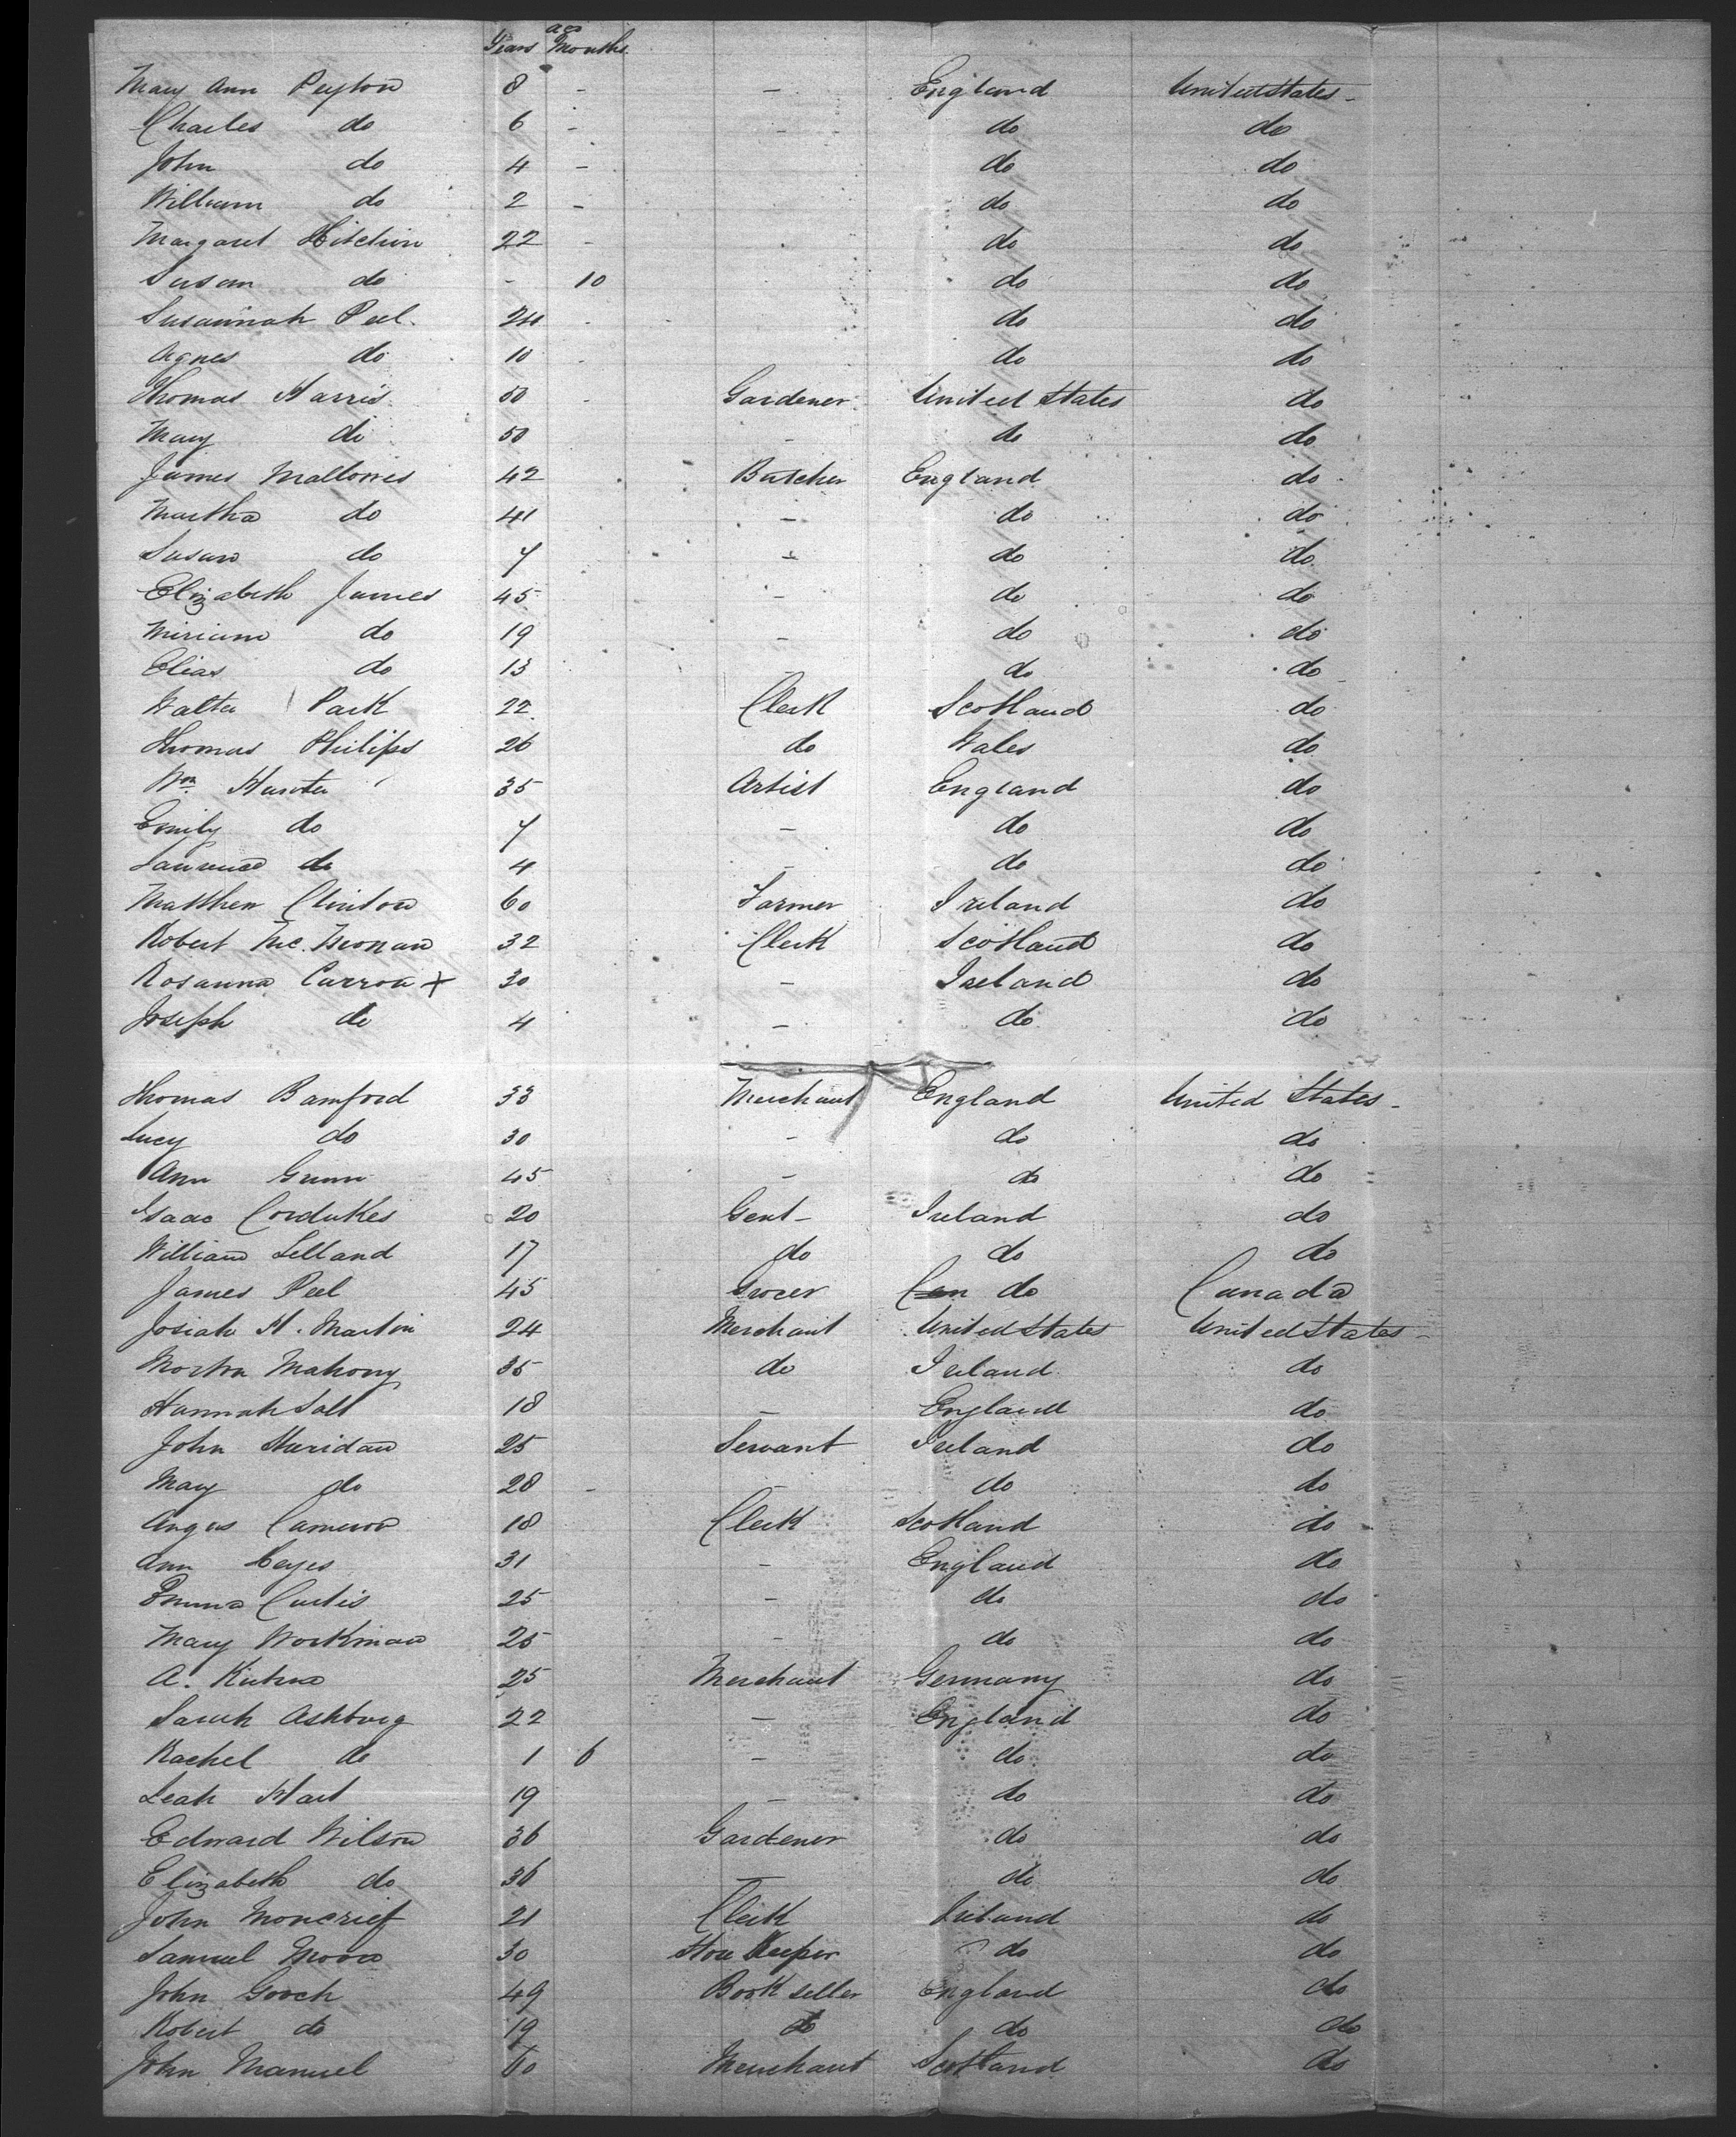 age
Years Months
Mary Ann Peyton 8 - - England United States -
Charles do 6 - - do do
John do 4 - do do
William do 2 - do do
Margaret Hitchin 22 - do do
Susan do - 10 do do
Susannah Peel. 24 - do do
Agnes do 10 - do do
Thomas Harris 50 - Gardener United States do
Mary do 50 - do do
James Mallows 42 Butcher England do
Martha do 41 - do do
Susan do 7 - do do
Elizabeth James 45 - do do
Miriam do 19 - do do
Elias do 13 - do do
Walter Park 22 Clerk Scotland do
Thomas Philips 26 do Wales do
Wm Hunter 35 Artist England do
Emily do 7 - do do
Laurence do 4 - do do
Matthew Clinton 60 Farmer Ireland do
Robert Mc. 32 Clerk Scotland do
Rosanna + 30 - Ireland do
Joseph do 4 - do do
Thomas Bamford 33 Merchant England United States -
Lucy do 30 - do do
Ann Gunn 45 - do do
Isaac Cordukes 20 Gent - Ireland do
William Lelland 17 do do do
James Peel 45 Grocer Can do Canada
Josiah H. Martin 24 Merchant United States United States -
Mahony 35 do Ireland do
Hannah Salt 18 - England do
John Sheridan 25 Servant Ireland do
Mary do 28 - - do do
Angus Cameron 18 Clerk Scotland do
Ann 31 - England do
Emma Curtis 25 - do do
Mary Workman 25 - do do
A. 25 Merchant Germany do
Sarah 22 - England do
Rachel do 1 6 - do do
Leah Hart 19 - do do
Edward Wilson 36 Gardener do do
Elizabeth do 36 - do do
John Moncrief 21 Clerk Ireland do
Samuel Moore 30 Store Keeper do do
John Gooch 49 Book seller England do
Robert do 19 do do do
John Manuel 60 Merchant Scotland do